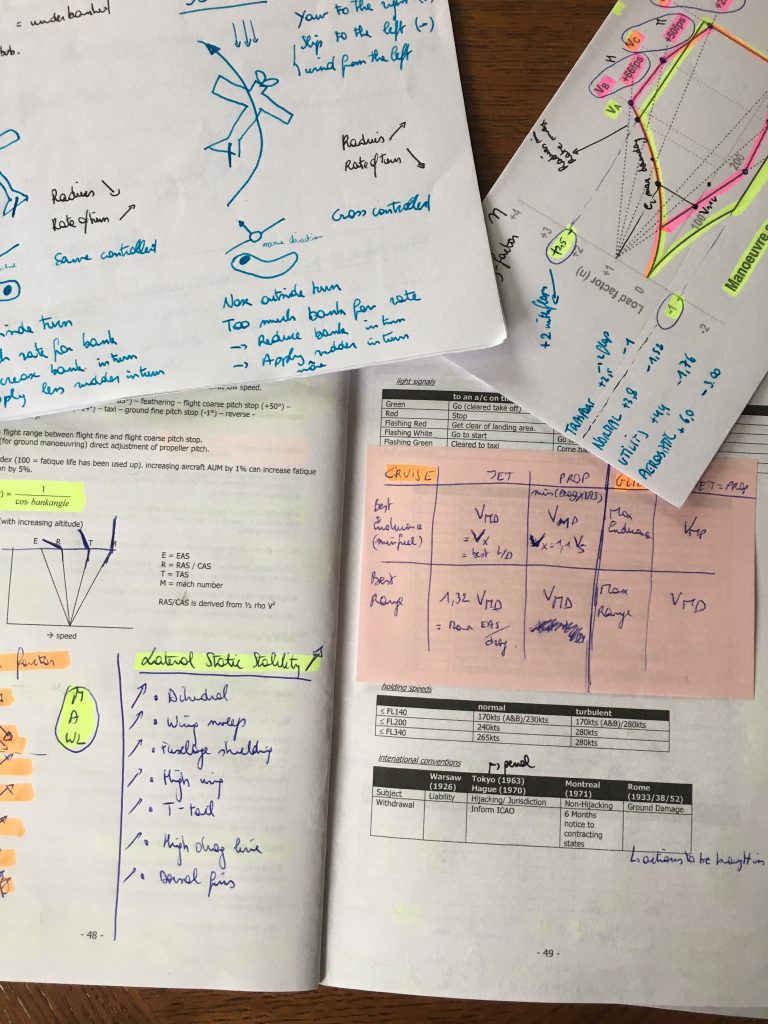 = underbanked
Yaw to the right (-)
Slip to the left (-)
wind from the left
Radius
Rate of turn
Cross controlled
same direction
Nose outside turn
Too much bank for rate
→ Reduce bank in turn
→ Apply rudder in turn
more
Radius
Rate of turn
Same controlled
turn
rate for bank
bank in turn
less rudder in turn
VC
+50fps
VB
+66fps
VA
200
100
Load factor (n)
+4
+3
+2
+1
0
-1
-2
+2,5
-1
Manoeuvre
TRANSPORT +2,5
NORMAL +3,8
UTILITY +4,4
-1,76
AEROBATIC +6,0
-3,00
low speed.
– feathering – flight coarse pitch stop (+50°) –
– taxi – ground fine pitch stop (-1°) – reverse -
flight range between flight fine and flight coarse pitch stop.
(for ground manoeuvring) direct adjustment of propeller pitch.
(100 = fatique life has been used up). increasing aircraft AUM by 1% can increase fatique
by 5%.
= 1 / cos·bankangle
(with increasing altitude)
E R T M
E = EAS
R = RAS / CAS
T = TAS
M = mach number
RAS/CAS is derived from ½ rho V²
→ speed
factor
M
A
WL
Lateral Static Stability ↗
↗ • Dihedral
↗ • Wing sweep
↗ • Fuselage shielding
↗ • High wing
↗ • T-tail
↗ • High drag line
↗ • Dorsal fins
- 48 -
light signals
to an a/c on the
Green Go (cleared take off)
Red Stop
Flashing Red Get clear of landing area.
Flashing White Go to start
Flashing Green Cleared to taxi
CRUISE JET PROP
Best Endurance (min fuel)
VMD
= Vx
= best L/D
VMD
Vx = 1,1 Vs
Max Endurance
VMP
Best Range
1,32 VMD
= max EAS/drag
VMD
Max Range
VMD
holding speeds
normal turbulent
≤ FL140 170kts (A&B)/230kts 170kts (A&B)/280kts
≤ FL200 240kts 280kts
≤ FL340 265kts 280kts
intenational conventions
→ penal
Warsaw (1926) Tokyo (1963) Hague (1970) Montreal (1971) Rome (1933/38/52)
Subject Liability Hijacking/ Jurisdiction Non-Hijacking Ground Damage
Withdrawal Inform ICAO 6 Months notice to contracting states
actions to be brought in
- 49 -